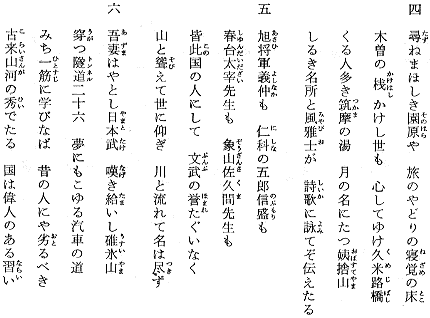 四 尋ねまほしき園原や 旅のやどりの寝覚の床
木曽の桟かけし世も 心してゆけ久米路橋
くる人多き筑摩の湯 月の名にたつ姨捨山
しるき名所と風雅士が 詩歌に詠てぞ伝えたる
五 旭将軍義仲も 仁科の五郎信盛も
春台太宰先生も 象山佐久間先生も
皆此国の人にして 文武の誉たぐいなく
山と聳えて世に仰ぎ 川と流れて名は尽ず
六 吾妻はやとし日本武 嘆き給いし碓氷山
穿つ隧道二十六 夢にもこゆる汽車の道
みち一筋に学びなば 昔の人にや劣るべき
古来山河の秀でたる 国は偉人のある習い